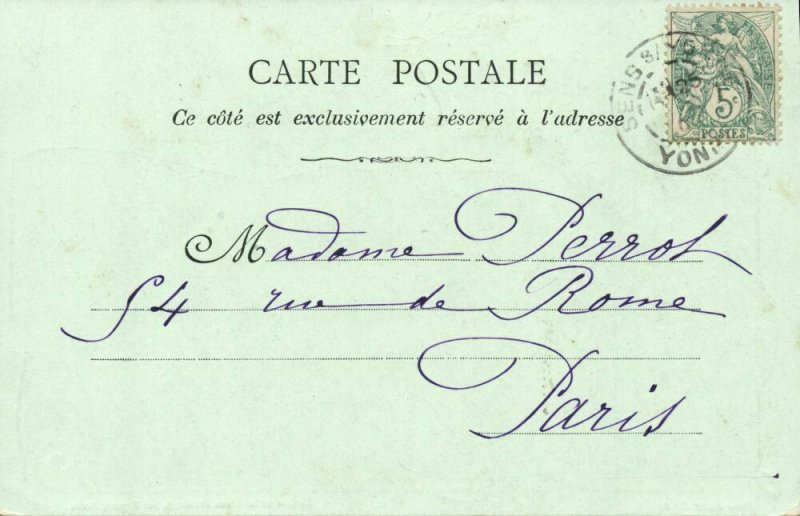 CARTE POSTALE
Ce côté est exclusivement réservé à l'adresse
SENS S/
YON
5c
POSTES
Madame Perrot
54 rue de Rome
Paris